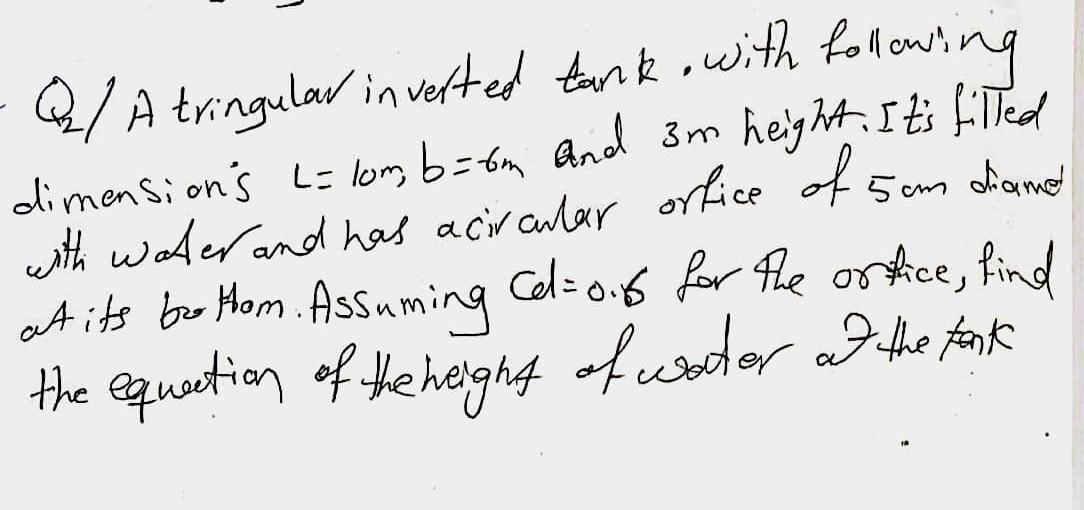 Q2/ A tringular inverted tank, with following
dimension's L=10m, b=6m and 3m height. It's filled
with water and has a circular orfice of 5cm diamet
at its bottom. Assuming Cd=0.6 for the orfice, find
the equation of the height of water at the tank